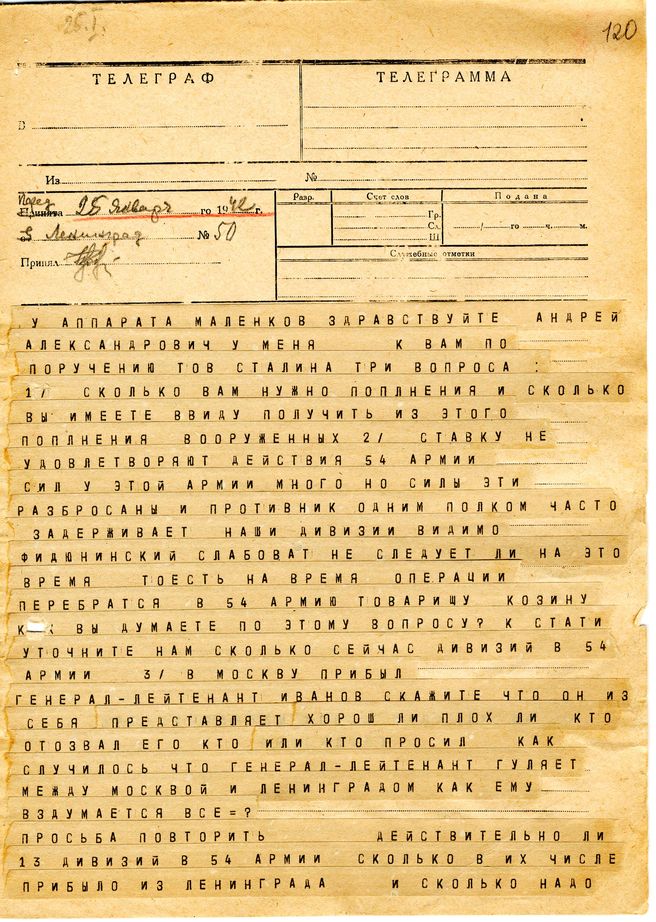 25.I.
120
ТЕЛЕГРАФ
ТЕЛЕГРАММА
В
Из
№
Перед.
Принята 25 Января го 1942 г.
Разр.
Счет слов
Подана
Гр.
Сл.
Ш
/ го ч. м.
в Ленинград № 50
Принял
Служебные отметки
У АППАРАТА МАЛЕНКОВ ЗДРАВСТВУЙТЕ АНДРЕЙ
АЛЕКСАНДРОВИЧ У МЕНЯ К ВАМ ПО
ПОРУЧЕНИЮ ТОВ СТАЛИНА ТРИ ВОПРОСА :
1/ СКОЛЬКО ВАМ НУЖНО ПОПЛНЕНИЯ И СКОЛЬКО
ВЫ ИМЕЕТЕ ВВИДУ ПОЛУЧИТЬ ИЗ ЭТОГО
ПОПЛНЕНИЯ ВООРУЖЕННЫХ 2/ СТАВКУ НЕ
УДОВЛЕТВОРЯЮТ ДЕЙСТВИЯ 54 АРМИИ
СИЛ У ЭТОЙ АРМИИ МНОГО НО СИЛЫ ЭТИ
РАЗБРОСАНЫ И ПРОТИВНИК ОДНИМ ПОЛКОМ ЧАСТО
ЗАДЕРЖИВАЕТ НАШИ ДИВИЗИИ ВИДИМО
ФИДЮНИНСКИЙ СЛАБОВАТ НЕ СЛЕДУЕТ ЛИ НА ЭТО
ВРЕМЯ ТОЕСТЬ НА ВРЕМЯ ОПЕРАЦИИ
ПЕРЕБРАТСЯ В 54 АРМИЮ ТОВАРИЩУ КОЗИНУ
К К ВЫ ДУМАЕТЕ ПО ЭТОМУ ВОПРОСУ? К СТАТИ
УТОЧНИТЕ НАМ СКОЛЬКО СЕЙЧАС ДИВИЗИЙ В 54
АРМИИ 3/ В МОСКВУ ПРИБЫЛ
ГЕНЕРАЛ-ЛЕЙТЕНАНТ ИВАНОВ СКАЖИТЕ ЧТО ОН ИЗ
СЕБЯ ПРЕДСТАВЛЯЕТ ХОРОШ ЛИ ПЛОХ ЛИ КТО
ОТОЗВАЛ ЕГО КТО ИЛИ КТО ПРОСИЛ КАК
СЛУЧИЛОСЬ ЧТО ГЕНЕРАЛ-ЛЕЙТЕНАНТ ГУЛЯЕТ
МЕЖДУ МОСКВОЙ И ЛЕНИНГРАДОМ КАК ЕМУ
ВЗДУМАЕТСЯ ВСЕ=?
ПРОСЬБА ПОВТОРИТЬ ДЕЙСТВИТЕЛЬНО ЛИ
13 ДИВИЗИЙ В 54 АРМИИ СКОЛЬКО В ИХ ЧИСЛЕ
ПРИБЫЛО ИЗ ЛЕНИНГРАДА И СКОЛЬКО НАДО